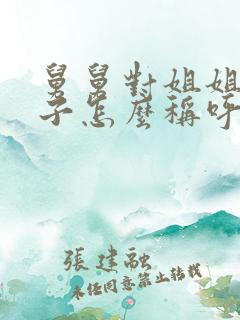 舅舅對姐姐
子怎麼稱呼
張建融
未任同意禁止轉載